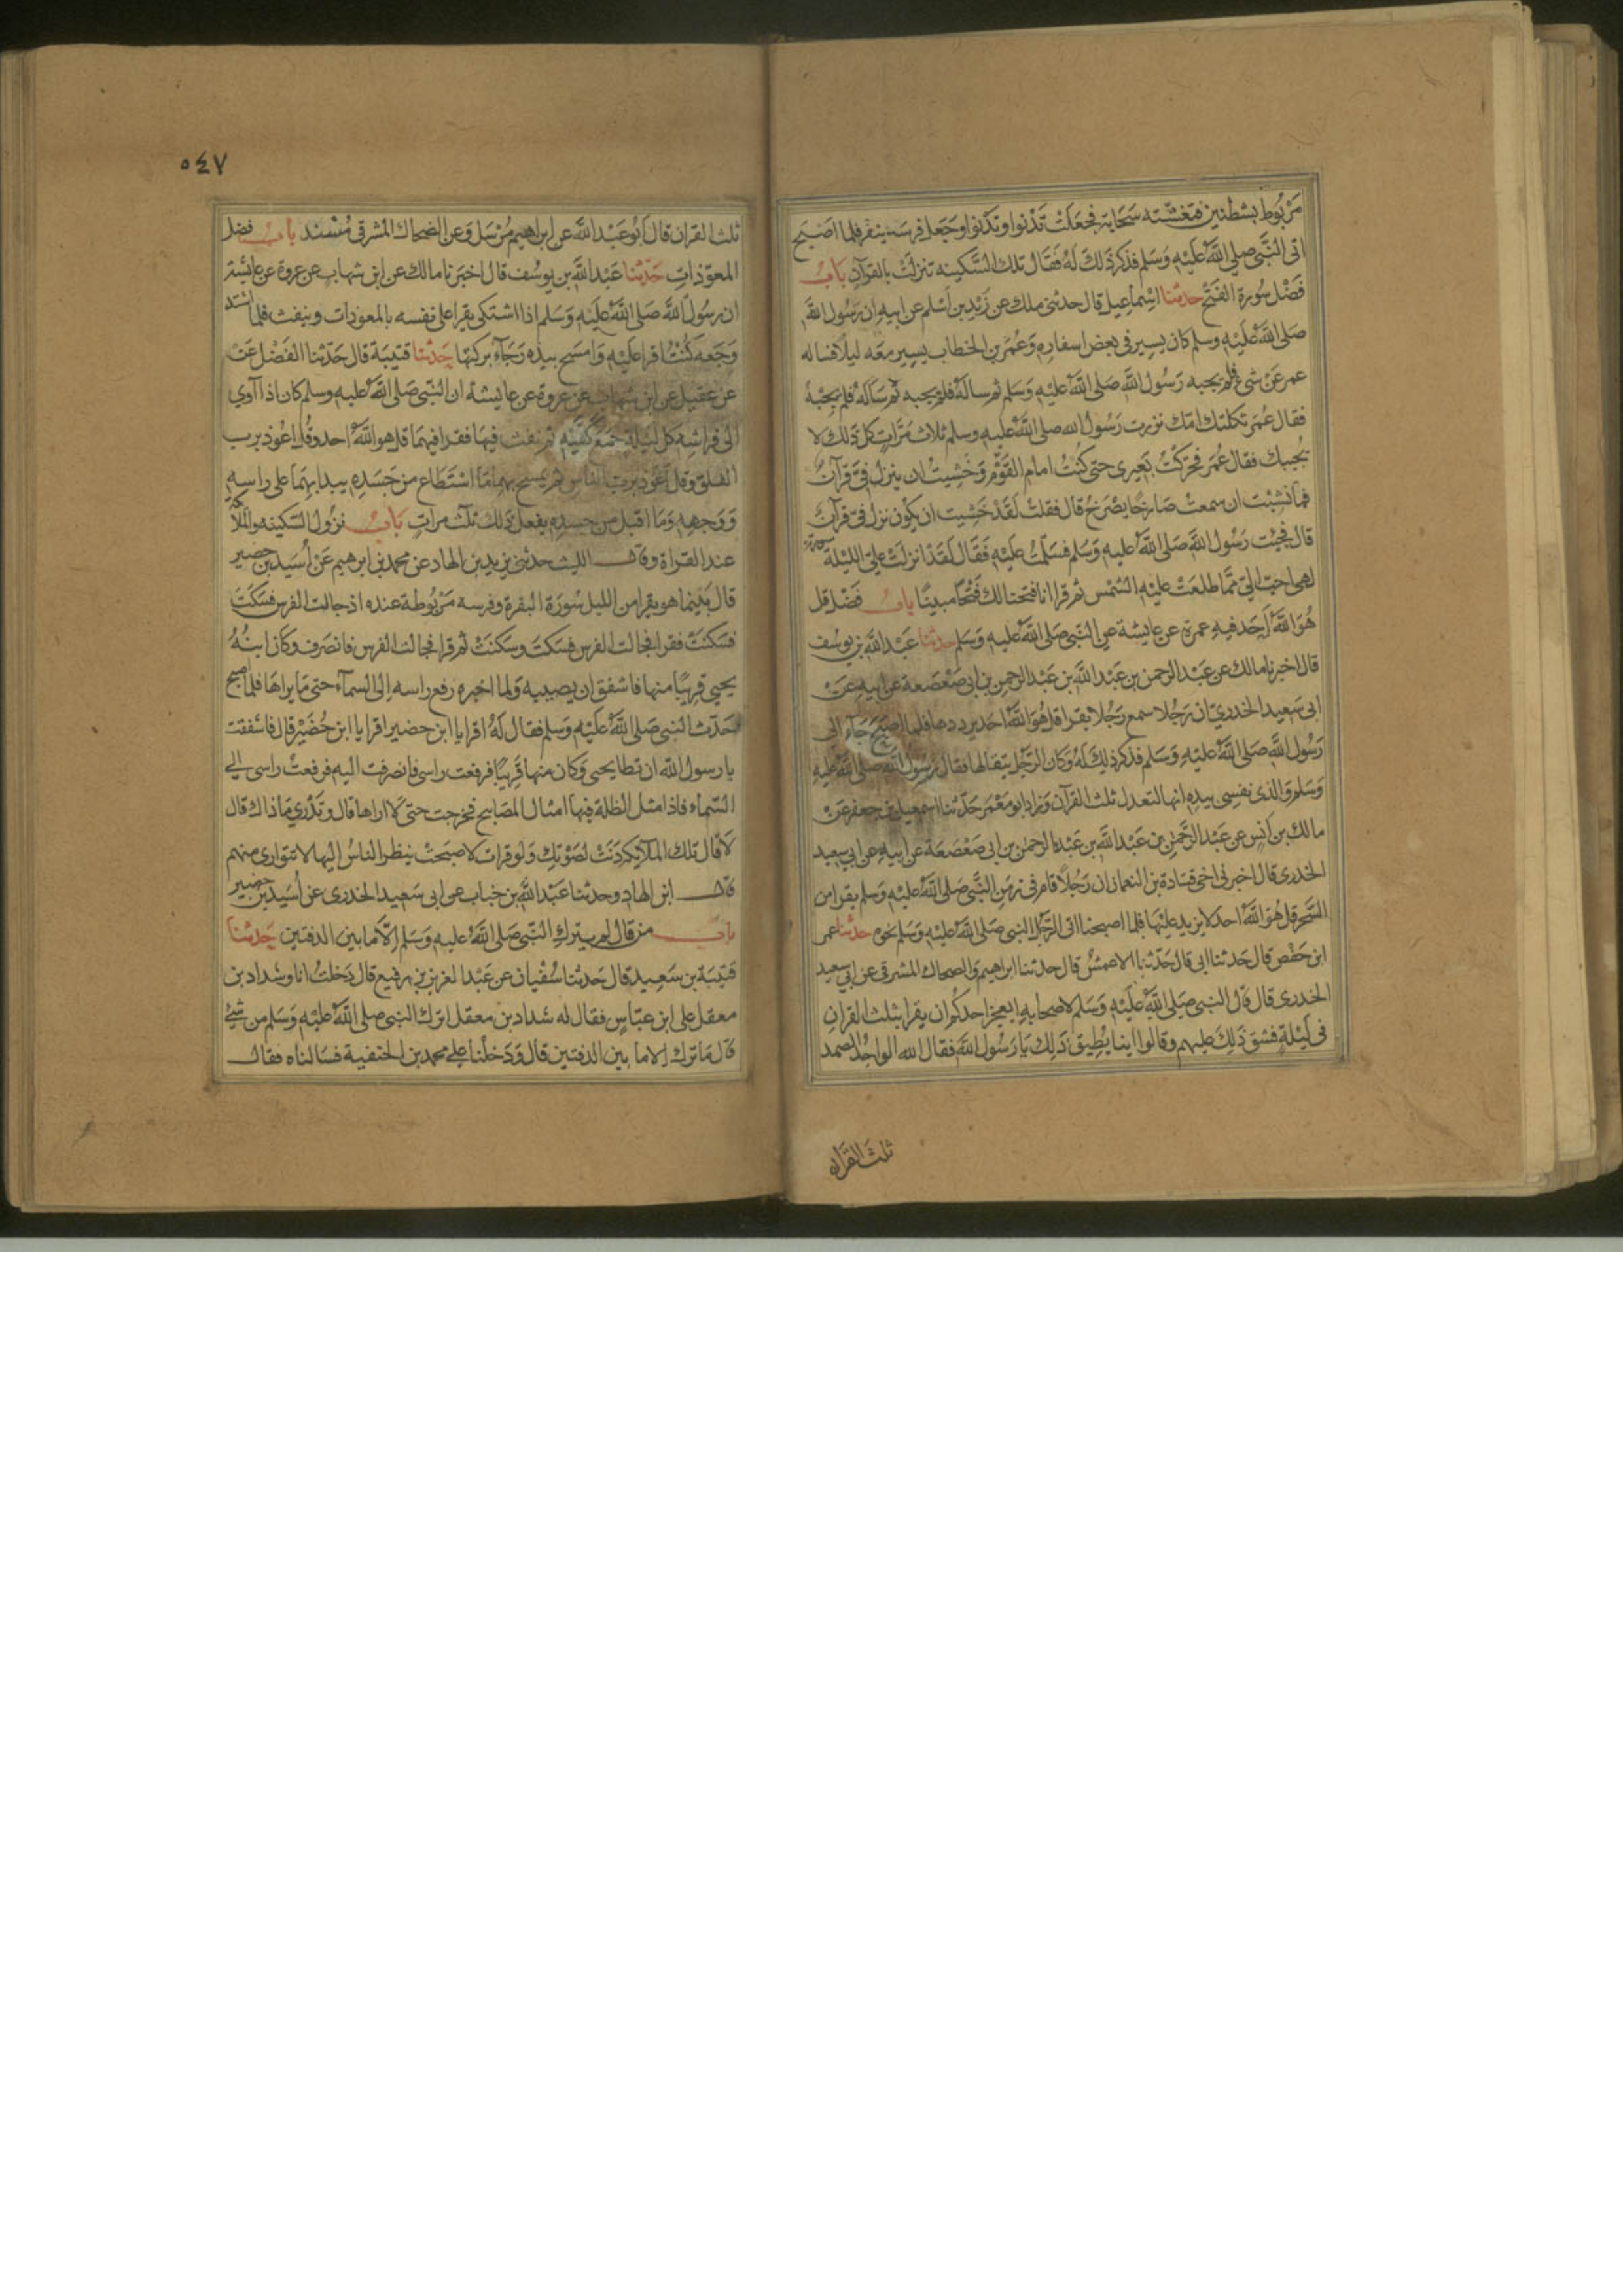 مربوط بشطنين فتغشته سحابة فجعلت تدنوا وتدنوا وجعل فرسه ينفر فلما اصبح
اتى النبي صلى الله عليه وسلم فذكر ذلك له فقال تلك السكينه تنزلت بالقرآن باب
فضل سورة الفتح حدثنا اسماعيل قال حدثني ملك عن زيد بن اسلم عن ابيه ان رسول الله
صلى الله عليه وسلم كان يسير في بعض اسفاره وعمر بن الخطاب يسير معه ليلا فساله
عمر عن شئ فلم يجبه رسول الله صلى الله عليه وسلم ثم ساله فلم يجبه ثم ساله فلم يجبه
فقال عمر ثكلتك امك نزرت رسول الله صلى الله عليه وسلم ثلاث مرات كل ذلك لا
يجيبك فقال عمر فحركت بعيرى حتى كنت امام القوم وخشيت ان ينزل في قرآن
فما نشبت ان سمعت صارخا يصرخ قال فقلت لقد خشيت ان يكون نزل في قرآن
قال فجئت رسول الله صلى الله عليه وسلم فسلمت عليه فقال لقد انزلت علي الليلة سورة
لهى احب الي مما طلعت عليه الشمس ثم قرا انا فتحنا لك فتحا مبينا باب فضل قل
هو الله احد فيه عمرة عن عايشة عن النبي صلى الله عليه وسلم حدثنا عبد الله بن يوسف
قال اخبرنا مالك عن عبد الرحمن بن عبد الله بن عبد الرحمن بن ابي صعصعة عن ابيه عن
ابي سعيد الخدري ان رجلا سمع رجلا يقرا قل هو الله احد يرددها فلما اصبح جآء الى
رسول الله صلى الله عليه وسلم فذكر ذلك له وكان الرجل يتقالها فقال رسول الله صلى الله عليه
وسلم والذى نفسي بيده انها لتعدل ثلث القرآن وزاد ابو معمر حدثنا اسمعيل بن جعفر عن
مالك بن انس عن عبد الرحمن بن عبد الله بن عبد الرحمن بن ابي صعصعة عن ابيه عن ابي سعيد
الخدرى قال اخبرني اخى قتادة بن النعمان ان رجلا قام في زمن النبي صلى الله عليه وسلم يقرا من
السحر قل هو الله احد لا يزيد عليها فلما اصبحنا اتى الرجل النبي صلى الله عليه وسلم نحوه حدثنا عمر
ابن حفص قال حدثنا ابى قال حدثنا الاعمش قال حدثنا ابراهيم والضحاك المشرقى عن ابي سعيد
الخدرى قال قال النبي صلى الله عليه وسلم لاصحابه ايعجز احدكم ان يقرا بثلث القران
في ليلة فشق ذلك عليهم وقالوا اينا يطيق ذلك يا رسول الله فقال الله الواحد الصمد
ثلث القران
٥٤٧
ثلث القران قال ابو عبد الله عن ابراهيم مرسل وعن الضحاك المشرقى مسند باب فضل
المعوذات حدثنا عبد الله بن يوسف قال اخبرنا مالك عن ابن شهاب عن عروة عن عايشة
ان رسول الله صلى الله عليه وسلم اذا اشتكى يقرا على نفسه بالمعوذات وينفث فلما اشتد
وجعه كنت اقرا عليه وامسح بيده رجآء بركتها حدثنا قتيبة قال حدثنا الفضل عن
عن عقيل عن ابن شهاب عن عروة عن عايشة ان النبي صلى الله عليه وسلم كان اذا آوي
الى فراشه كل ليلة جمع كفيه ثم نفث فيها فقرا فيهما قل هو الله احد وقل اعوذ برب
الفلق وقل اعوذ برب الناس ثم يمسح بهما ما استطاع من جسده يبدا بهما على راسه
ووجهه وما اقبل من جسده يفعل ذلك ثلث مرات باب نزول السكينه والملائكة
عند القراة وقال الليث حدثني يزيد بن الهاد عن محمد بن ابرهيم عن اسيد بن حضير
قال بينما هو يقرا من الليل سورة البقرة وفرسه مربوطة عنده اذ جالت الفرس فسكت
فسكنت فقرا فجالت الفرس فسكت وسكنت ثم قرا فجالت الفرس فانصرف وكان ابنه
يحيى قريبا منها فاشفق ان يصيبه ولما اخبره رفع راسه الى السمآء حتى ما يراها فلما اصبح
حدث النبي صلى الله عليه وسلم فقال له اقرا يا ابن حضير اقرا يا ابن حضير قال فاشفقت
يا رسول الله ان تطا يحيى وكان منها قريبا فرفعت راسى فانصرفت اليه فرفعت راسى الي
السماء فاذا مثل الظلة فيها امثال المصابيح فخرجت حتى لا اراها قال وتدري ما ذاك قال
لا قال تلك الملآيكة دنت لصوتك ولو قرات لاصبحت ينظر الناس اليها لا تتوارى منهم
قال ابن الهاد وحدثنا عبد الله بن خباب عن ابى سعيد الخدرى عن اسيد بن حضير
باب من قال لم يترك النبي صلى الله عليه وسلم الا ما بين الدفتين حدثنا
قتيبة بن سعيد قال حدثنا سفيان عن عبد العزيز بن رفيع قال دخلت انا وشداد بن
معقل على ابن عباس فقال له شداد بن معقل اترك النبي صلى الله عليه وسلم من شئ
قال ما ترك الا ما بين الدفتين قال ودخلنا علي محمد بن الحنفية فسالناه فقال